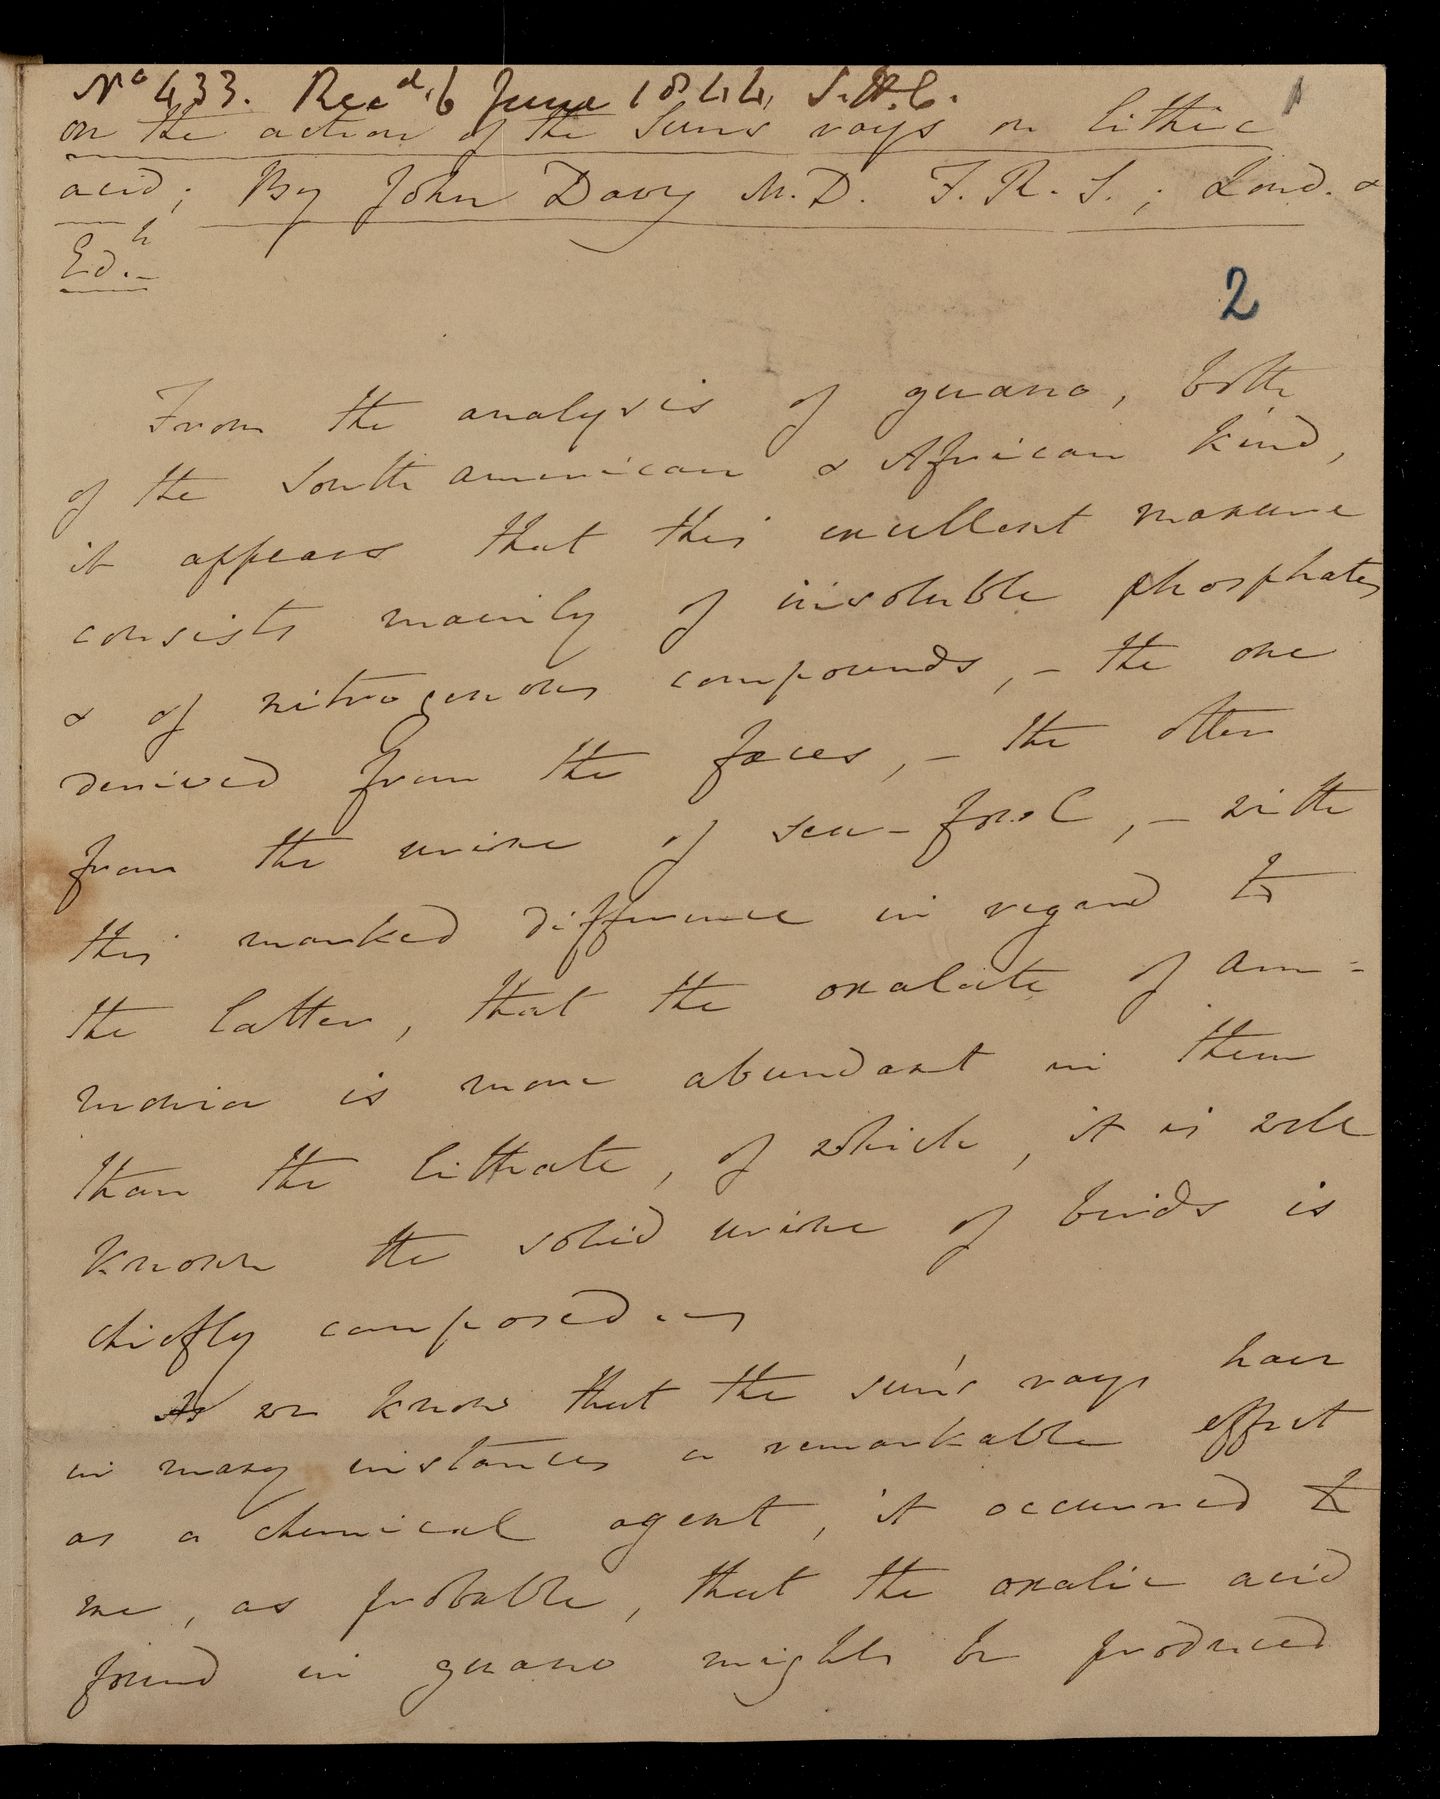 No 433. Recd. 6 June 1844. S.H.C.
1
on the action of the Suns rays on lithic
acid; By John Davy M.D. F.R.S.; Lond. &
Edh.
2
From the analysis of guano, both
of the South American & African kind,
it appears that this excellent manure
consists mainly of insoluble phosphates
& of nitrogenous compounds, – the one
derived from the fæces, – the other
from the urine of sea-fowl, – with
this marked difference in regard to
the latter, that the oxalate of am=
monia is more abundant in them
than the lithate, of which, it is well
known the solid urine of birds is
chiefly composed.
As we know that the sun's rays have
in many instances a remarkable effect
as a chemical agent, it occurred to
me, as probable, that the oxalic acid
found in guano might be produced